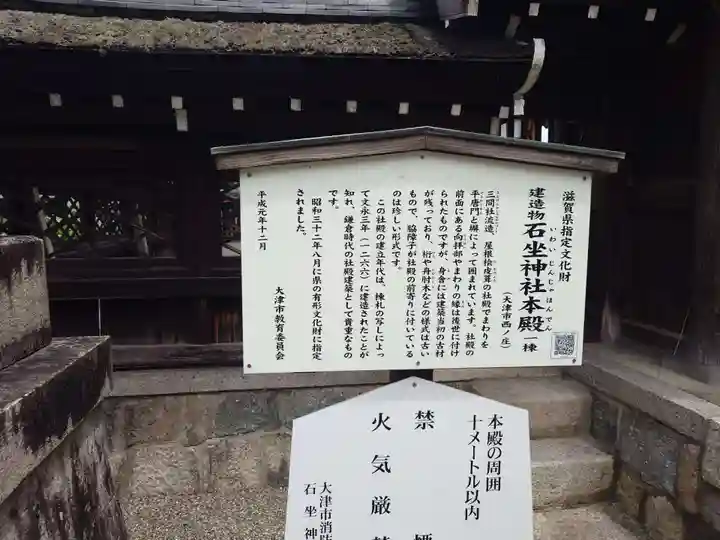 滋賀県指定文化財
建造物 石坐神社本殿 一棟
いわい じんじゃ ほんでん
（大津市西ノ庄）
三間社流造、屋根桧皮葺の社殿でまわりを
平唐門と塀によって囲まれています。社殿の
前面にある向拝部やまわりの縁は後世に付け
られたものですが、身舎には建築当初の古材
が残っており、桁や舟肘木などの様式は古い
もので、脇障子が社殿の前寄りに付いている
のは珍しい形式です。
この社殿の建立年代は、棟札の写しによっ
て文永三年（一二六六）に建造されたことが
知れ、鎌倉時代の社殿建築として貴重なもの
です。
昭和三十二年八月に県の有形文化財に指定
されました。
平成元年十二月
大津市教育委員会
本殿の周囲
十メートル以内
禁
火気厳
大津市消
石坐神